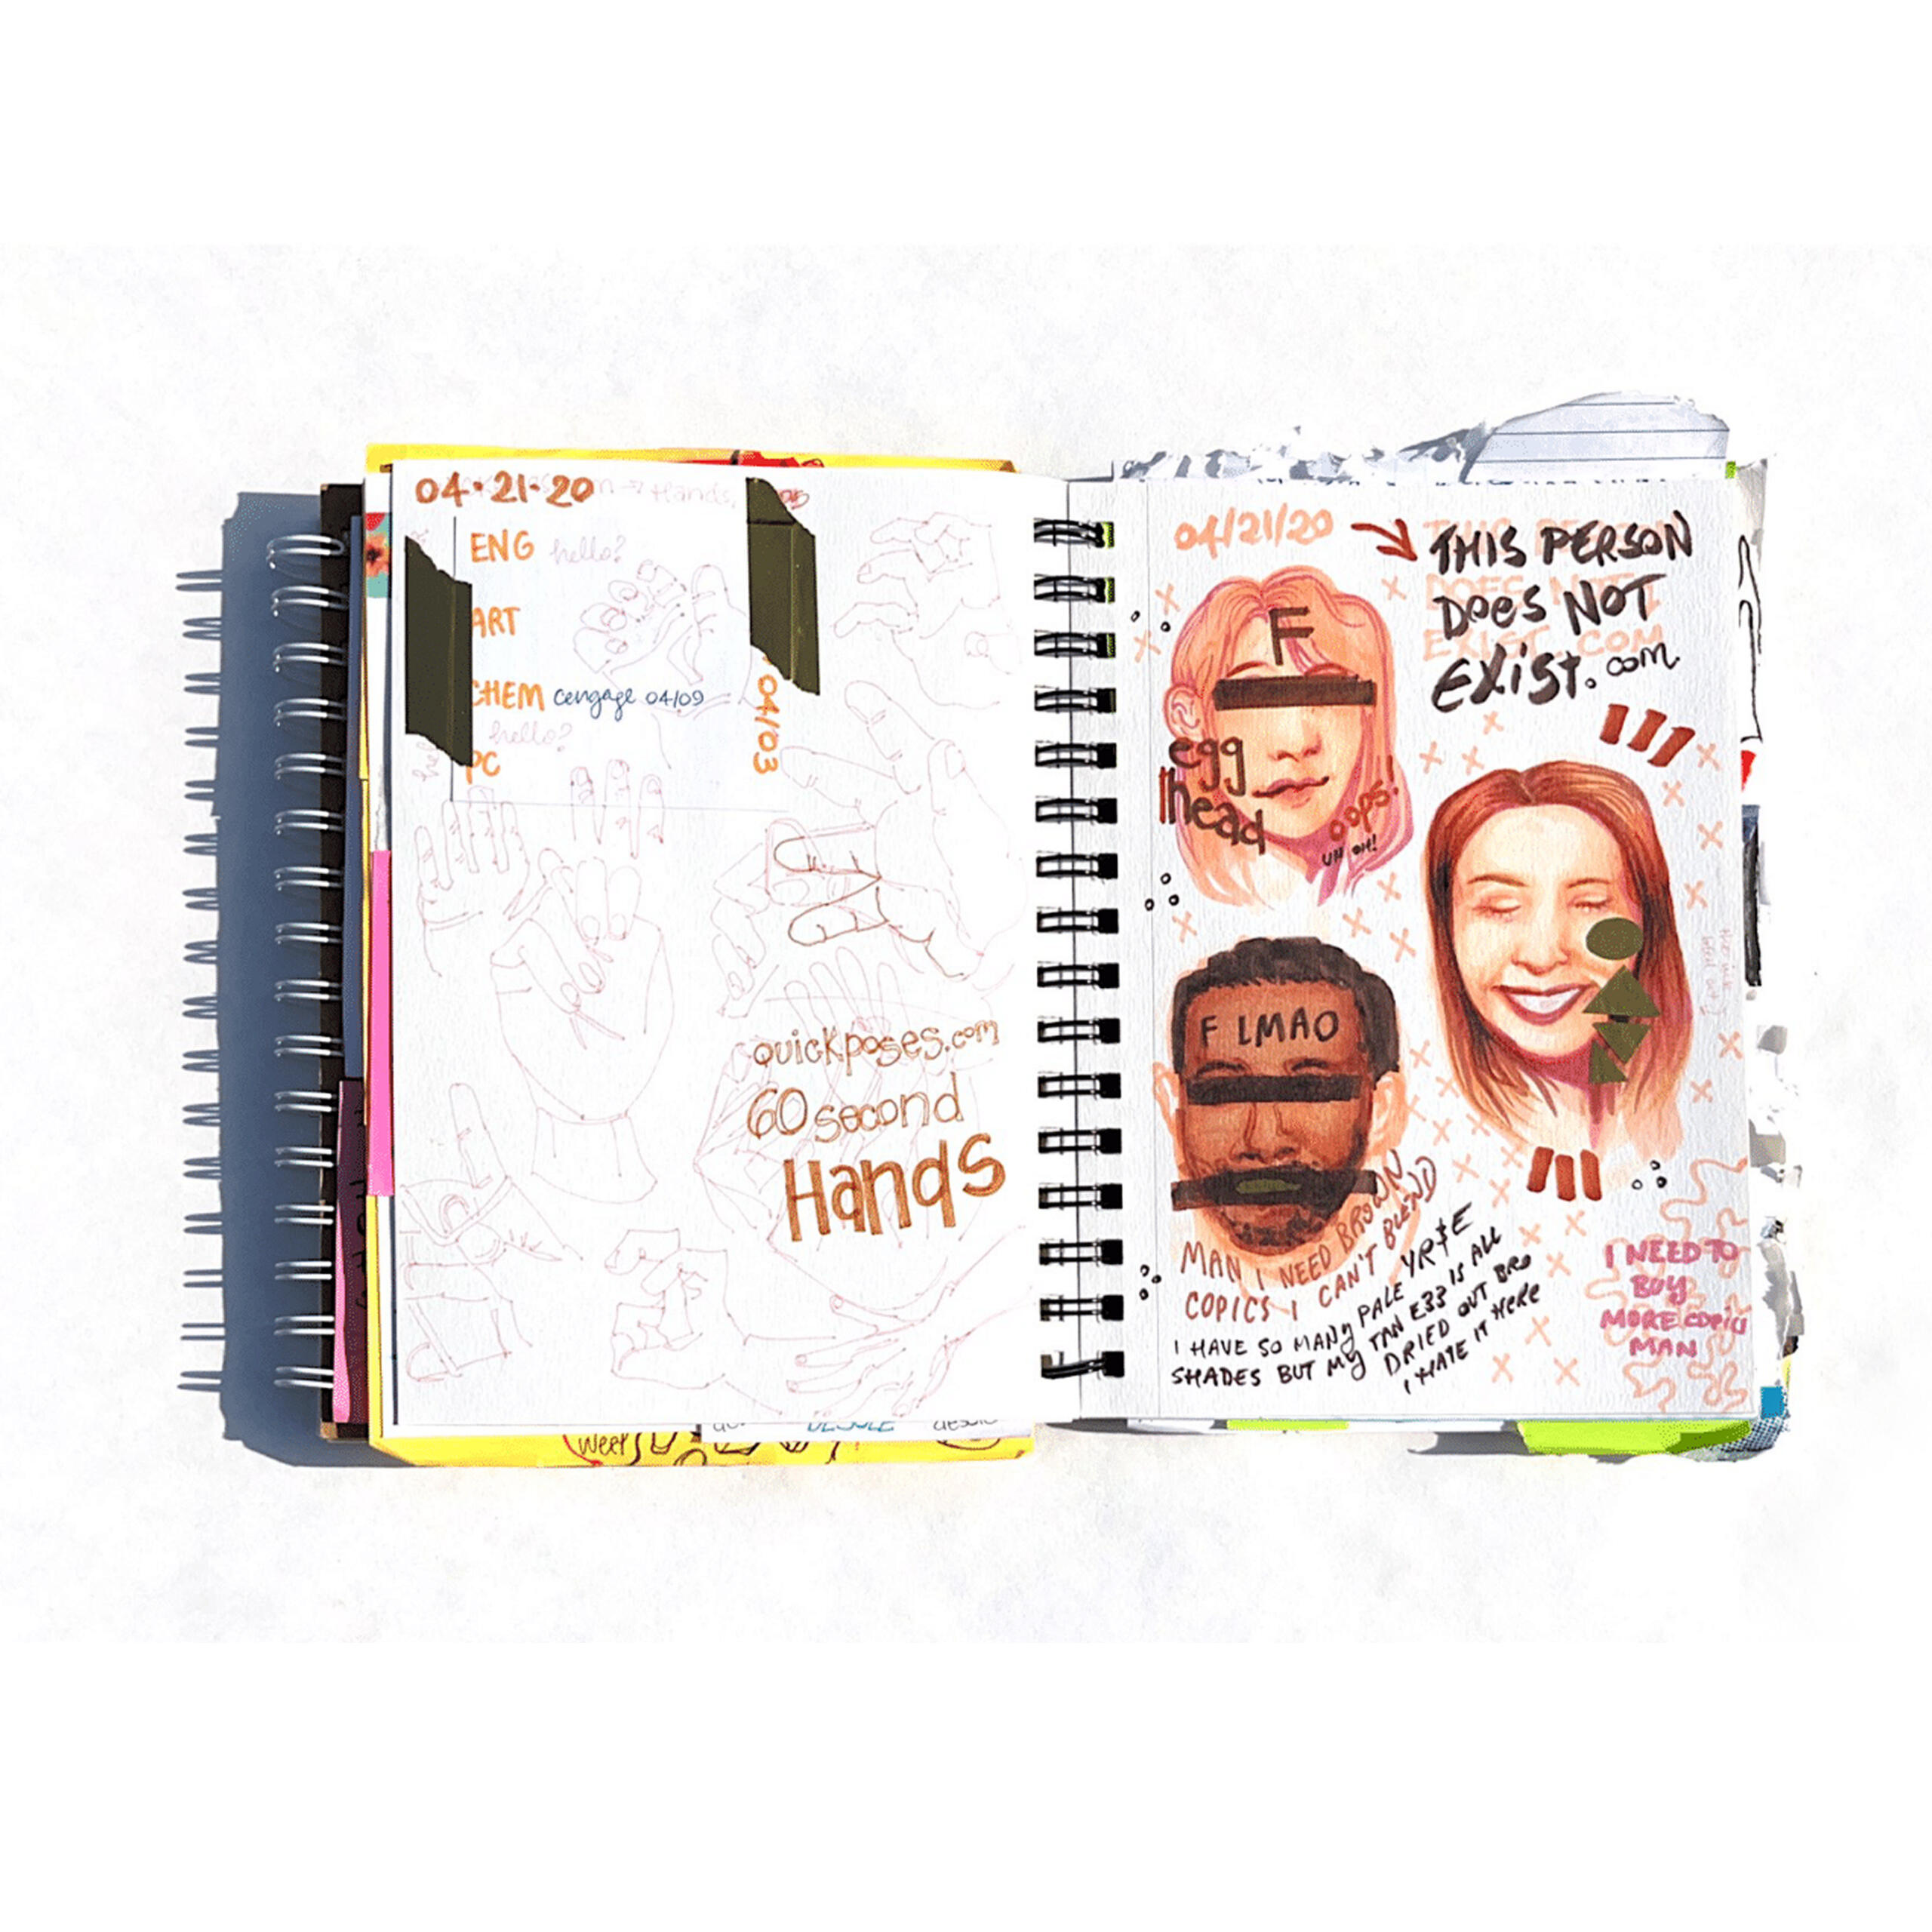 04·21·20
Hands,
ENG hello?
ART
CHEM cengage 04/09
hello?
PC
04/03
quickposes.com
60 second
Hands
weep
DESOLE
04/21/20
THIS PERSON
DOES NOT
EXIST.COM
THIS PERSON
Does NOT
Exist.com
F
egg
head
oops!
UH OH!
F LMAO
MAN I NEED BROWN
COPICS I CAN'T BLEND
I HAVE SO MANY PALE YR$E
SHADES BUT MY TAN E33 IS ALL
DRIED OUT BRO
I HATE IT HERE
I NEED TO
BUY
MORE COPIC
MAN